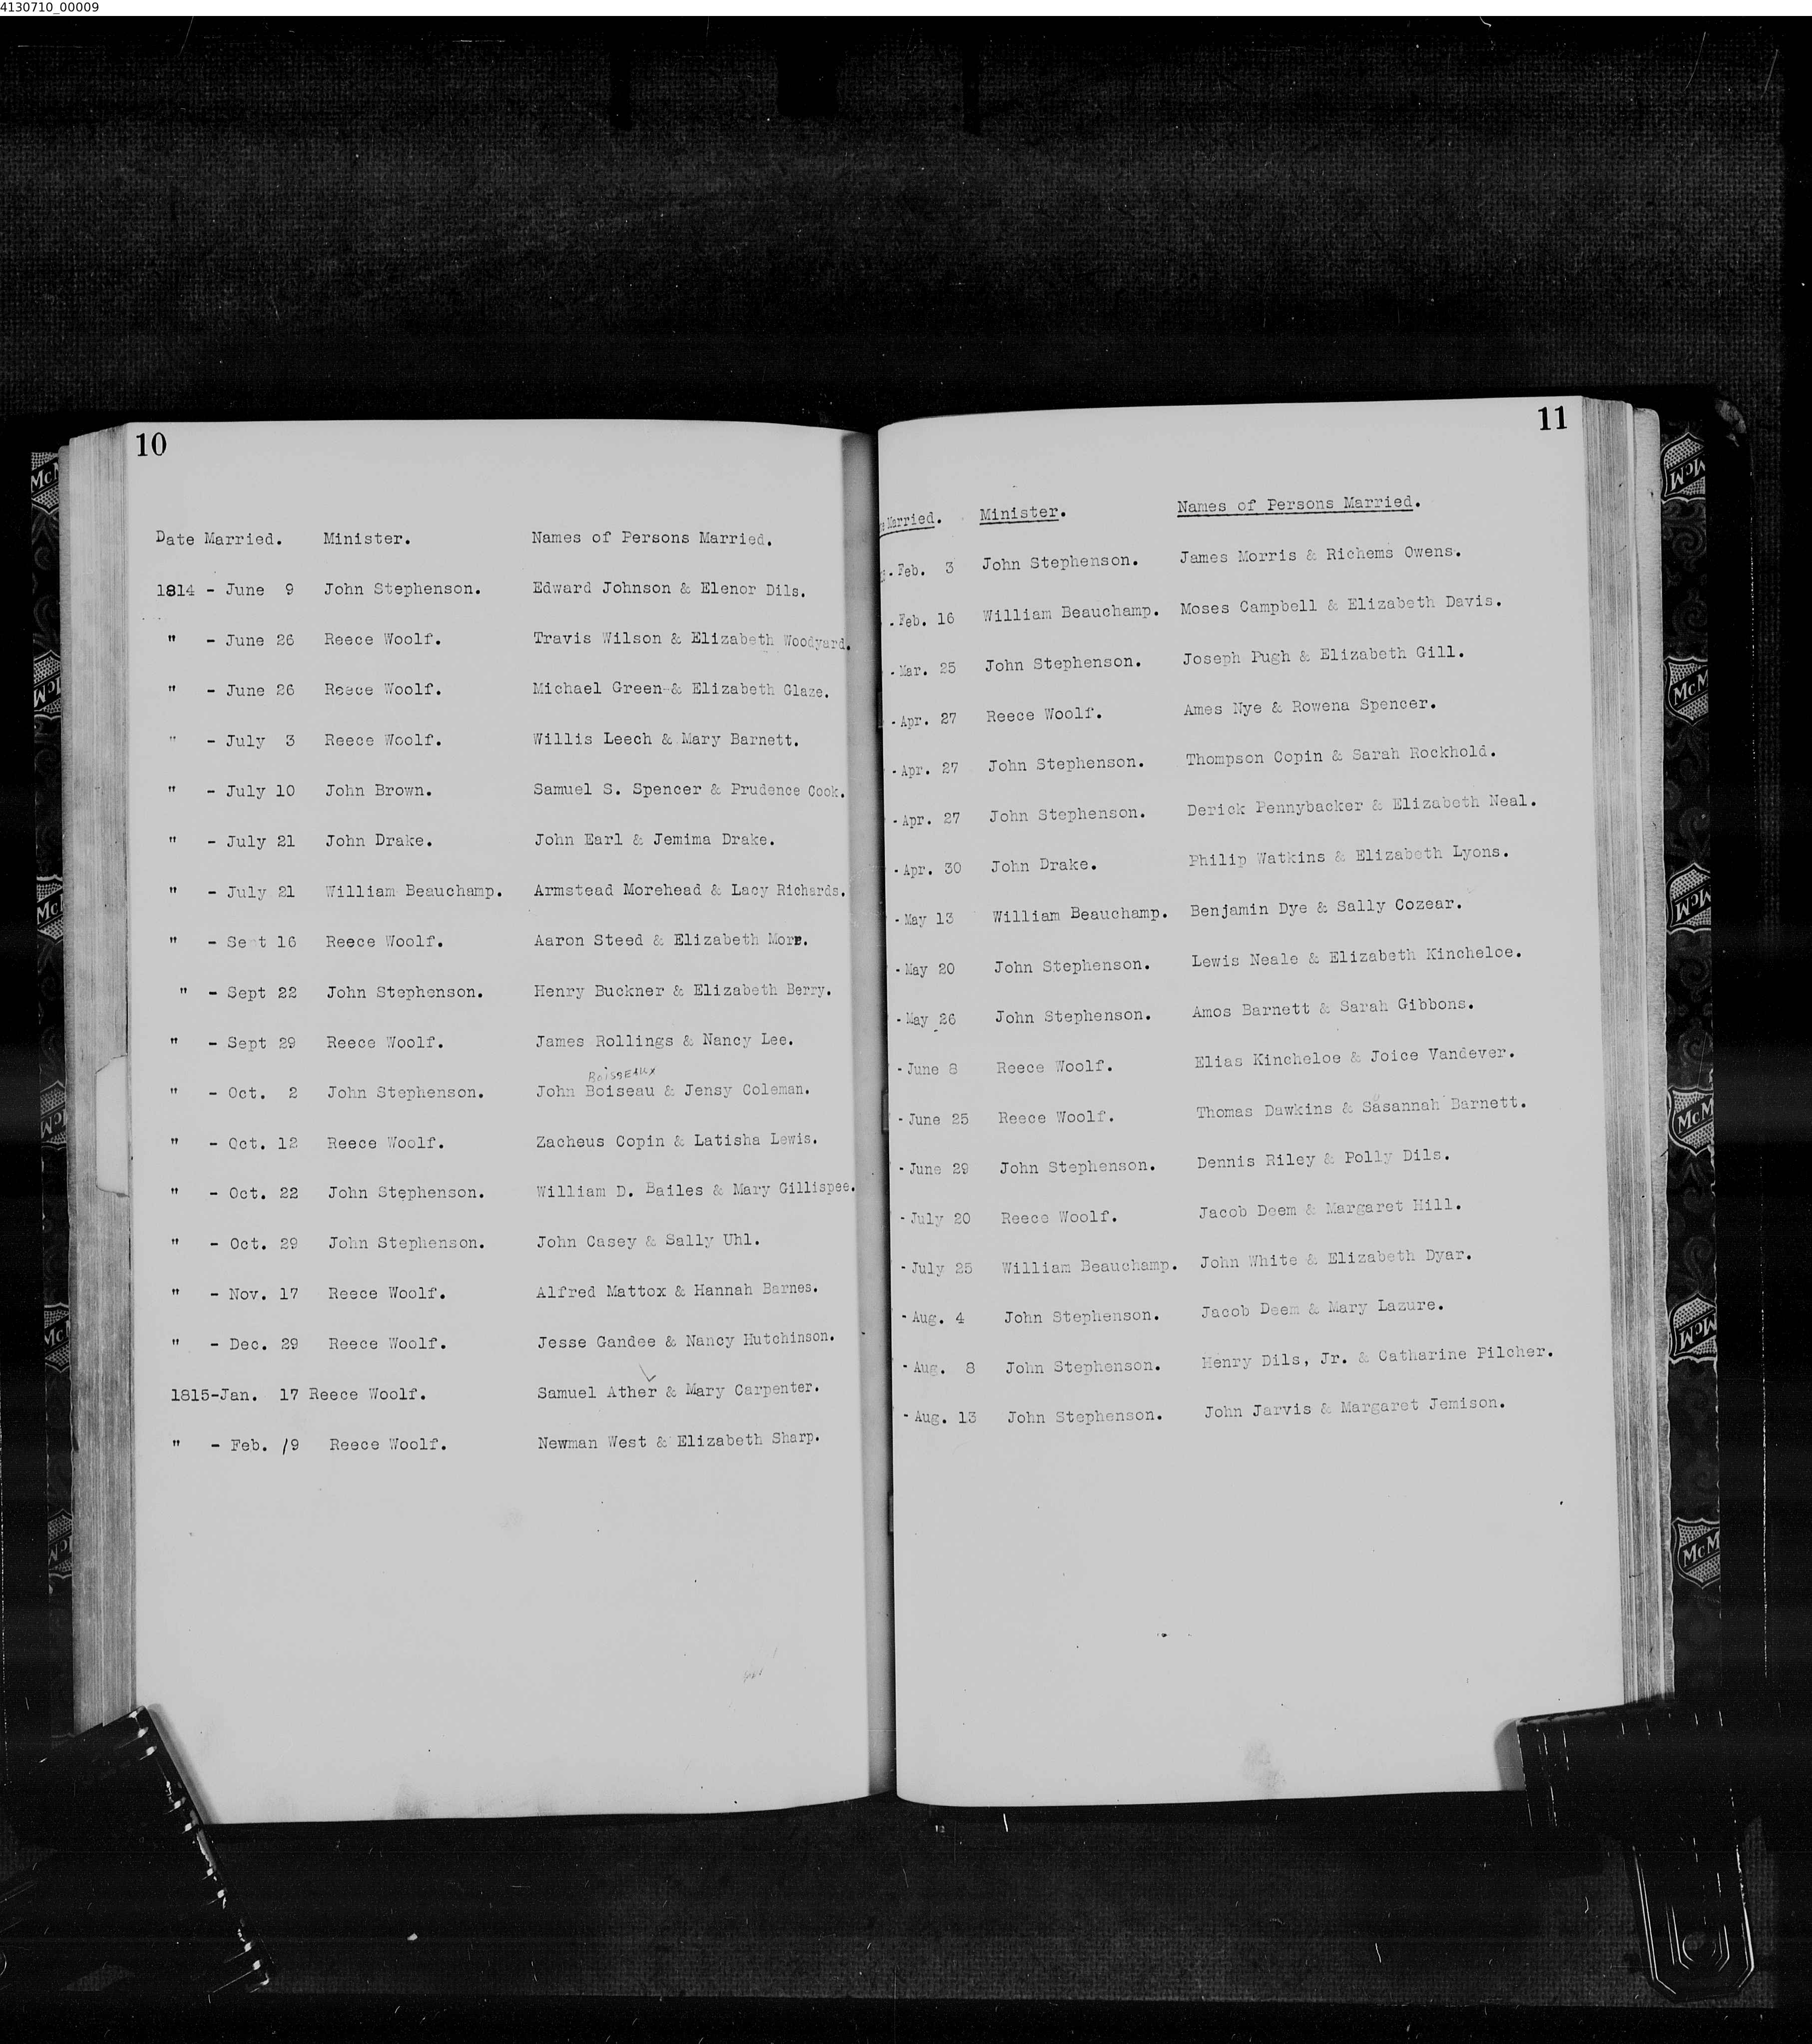 4130710_00009
10
Date Married. Minister. Names of Persons Married.
1814 - June 9 John Stephenson. Edward Johnson & Elenor Dils.
" - June 26 Reece Woolf. Travis Wilson & Elizabeth Woodyard.
" - June 26 Reece Woolf. Michael Green & Elizabeth Glaze.
" - July 3 Reece Woolf. Willis Leech & Mary Barnett.
" - July 10 John Brown. Samuel S. Spencer & Prudence Cook.
" - July 21 John Drake. John Earl & Jemima Drake.
" - July 21 William Beauchamp. Armstead Morehead & Lacy Richards.
" - Sept 16 Reece Woolf. Aaron Steed & Elizabeth Morr.
" - Sept 22 John Stephenson. Henry Buckner & Elizabeth Berry.
" - Sept 29 Reece Woolf. James Rollings & Nancy Lee.
BOISSEAUX
" - Oct. 2 John Stephenson. John Boiseau & Jensy Coleman.
" - Oct. 12 Reece Woolf. Zacheus Copin & Latisha Lewis.
" - Oct. 22 John Stephenson. William D. Bailes & Mary Gillispee.
" - Oct. 29 John Stephenson. John Casey & Sally Uhl.
" - Nov. 17 Reece Woolf. Alfred Mattox & Hannah Barnes.
" - Dec. 29 Reece Woolf. Jesse Gandee & Nancy Hutchinson.
1815-Jan. 17 Reece Woolf. Samuel Ather & Mary Carpenter.
" - Feb. 19 Reece Woolf. Newman West & Elizabeth Sharp.
11
Married. Minister. Names of Persons Married.
- Feb. 3 John Stephenson. James Morris & Richems Owens.
- Feb. 16 William Beauchamp. Moses Campbell & Elizabeth Davis.
- Mar. 25 John Stephenson. Joseph Pugh & Elizabeth Gill.
- Apr. 27 Reece Woolf. Ames Nye & Rowena Spencer.
- Apr. 27 John Stephenson. Thompson Copin & Sarah Rockhold.
- Apr. 27 John Stephenson. Derick Pennybacker & Elizabeth Neal.
- Apr. 30 John Drake. Philip Watkins & Elizabeth Lyons.
- May 13 William Beauchamp. Benjamin Dye & Sally Cozear.
- May 20 John Stephenson. Lewis Neale & Elizabeth Kincheloe.
- May 26 John Stephenson. Amos Barnett & Sarah Gibbons.
- June 8 Reece Woolf. Elias Kincheloe & Joice Vandever.
- June 25 Reece Woolf. Thomas Dawkins & Sasannah Barnett.
- June 29 John Stephenson. Dennis Riley & Polly Dils.
- July 20 Reece Woolf. Jacob Deem & Margaret Hill.
- July 25 William Beauchamp. John White & Elizabeth Dyar.
- Aug. 4 John Stephenson. Jacob Deem & Mary Lazure.
- Aug. 8 John Stephenson. Henry Dils, Jr. & Catharine Pilcher.
- Aug. 13 John Stephenson. John Jarvis & Margaret Jemison.
12